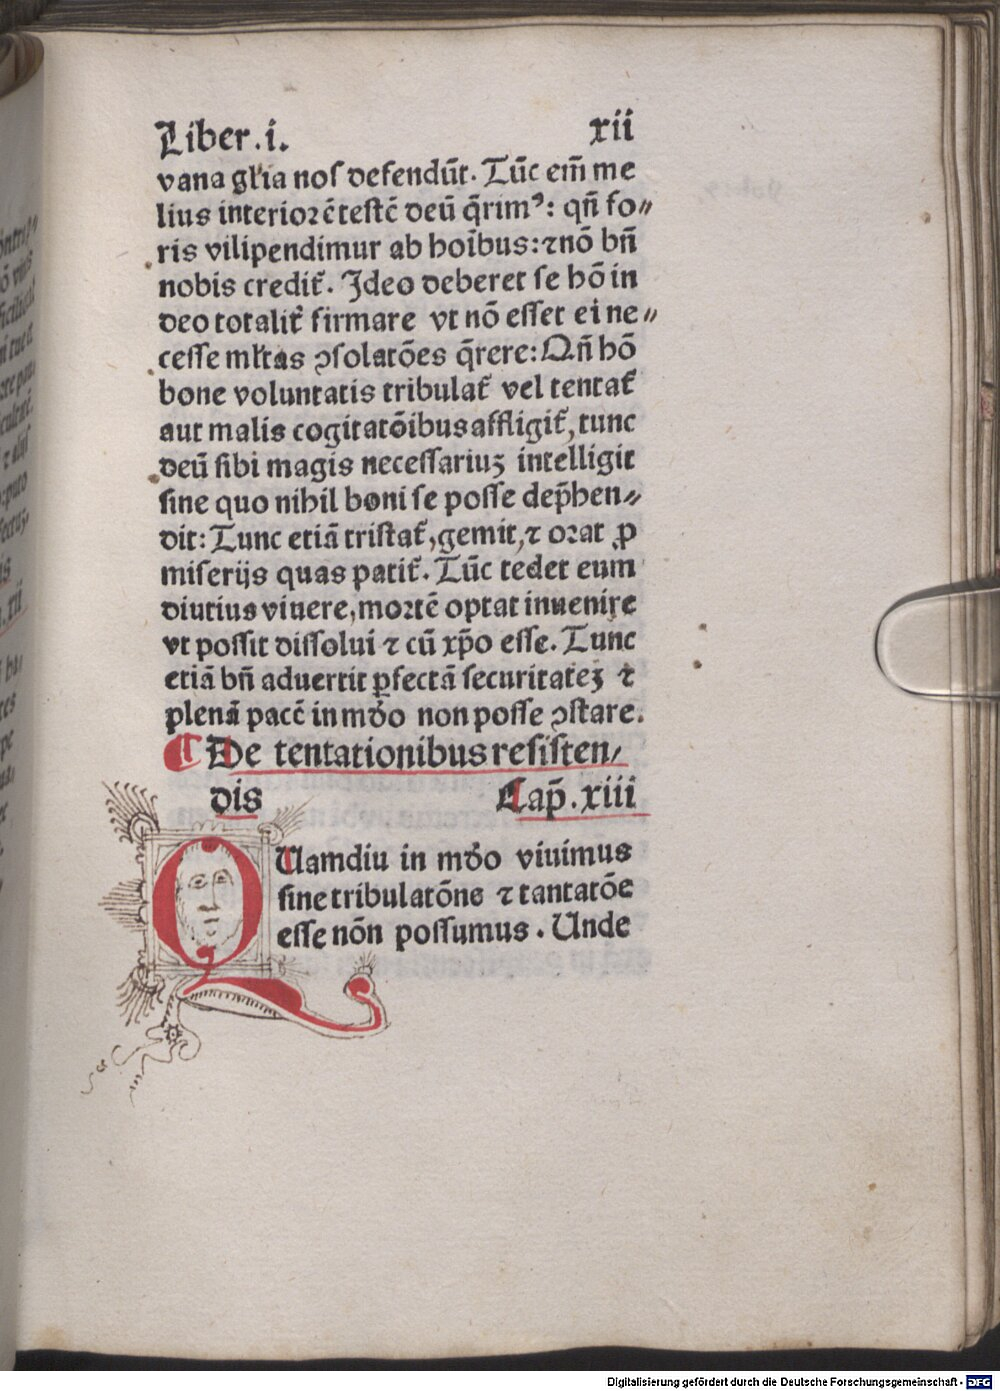 Liber .i. xii
vana gl'ia nos defendūt. Tūc em̄ me
lius interiorē testē deū q̄rimꝰ: qn̄ fo〃
ris vilipendimur ab hoībus: ⁊ nō bn̄
nobis credit᷑. Ideo deberet se hō in
deo totalit᷑ firmare vt nō esset ei ne〃
cesse ml'tas ꝯsolatōes q̄rere: Qn̄ hō
bone voluntatis tribulat᷑ vel tentat᷑
aut malis cogitatōibus affligit᷑, tunc
deū sibi magis necessariuꝫ intelligit
sine quo nihil boni se posse dep̄hen〃
dit: Tunc etiā tristat᷑, gemit, ⁊ orat ꝓ
miserijs quas patit᷑. Tūc tedet eum
diutius viuere, mortē optat inuenire
vt possit dissolui ⁊ cū xp̄o esse. Tunc
etiā bn̄ aduertit ꝑfectā securitateꝫ ⁊
plenā pacē in mōo non posse ꝯstare.
¶ De tentationibus resisten/
dis Cap̄. xiii
QUamdiu in mōo viuimus
sine tribulatōne ⁊ tantatōe
esse nōn possumus. Unde
Digitalisierung gefördert durch die Deutsche Forschungsgemeinschaft - DFG